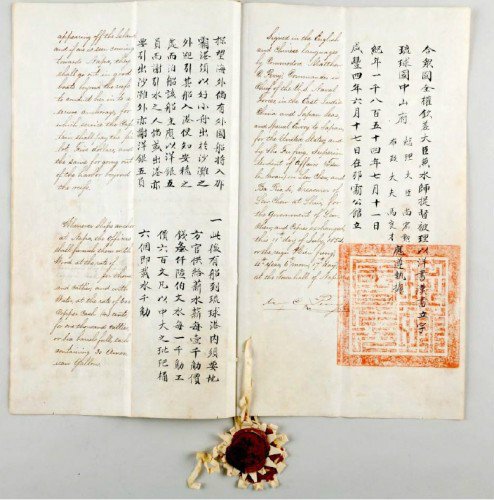 appearing off the Island
and if one is seen coming
towards Napa, they
shall go out in good
boats beyond the reefs
to conduct her in to a
secure anchorage, for
which service the Captain
shall pay the pilot
Five dollars, and
the same for going out
of the harbor beyond
the reefs.
Whenever Ships anchor
at Napa, the Officers
shall furnish them with
Wood at the rate of
per thousand
catties; and with
Water at the rate of 600
Copper Cash (43 cents)
for one thousand catties,
or six barrels full, each
containing 30 Ameri-
can Gallons.
探望海外倘有外國船將入那
霸港須以好小舟出於沙灘之
外迎引其船入港使知安穩之
處而泊船該船主應以洋銀五
員而謝引水之人倘或出港亦
要引出沙灘外亦謝洋銀五員
一此後有船到琉球港內須要地
方官供給薪水薪每壹千觔價
錢叁仟陸伯文水每一千觔工
價六百文凡以中大之琵琶桶
六個即載水千觔
Signed in the English
and Chinese languages,
by Commodore Matthew
C. Perry, Commander in
Chief of the U.S. Naval
Forces in the East India
China and Japan Seas,
and Special Envoy to Japan,
for the United States; and
by Sho Fu fing, Superin-
tendent of Affairs (Tsu-
li-kwan) in Lew Chew, and
Ba Rio-si, Treasurer of
Lew Chew, at Shui, for
the Government of Lew
Chew, and copies exchanged
this 11th day of July, 1854,
or the reign Hien fung,
4th year, 6th moon, 17th day,
at the Town Hall of Napa.
M. C. Perry
合衆國全權欽差大臣兼水師提督彼理以洋書漢書立字
琉球國中山府
總理大臣尚宏勳
布政大夫馬良才
應遵執據
紀年一千八百五十四年七月十一日
咸豐四年六月十七日在那霸公館立